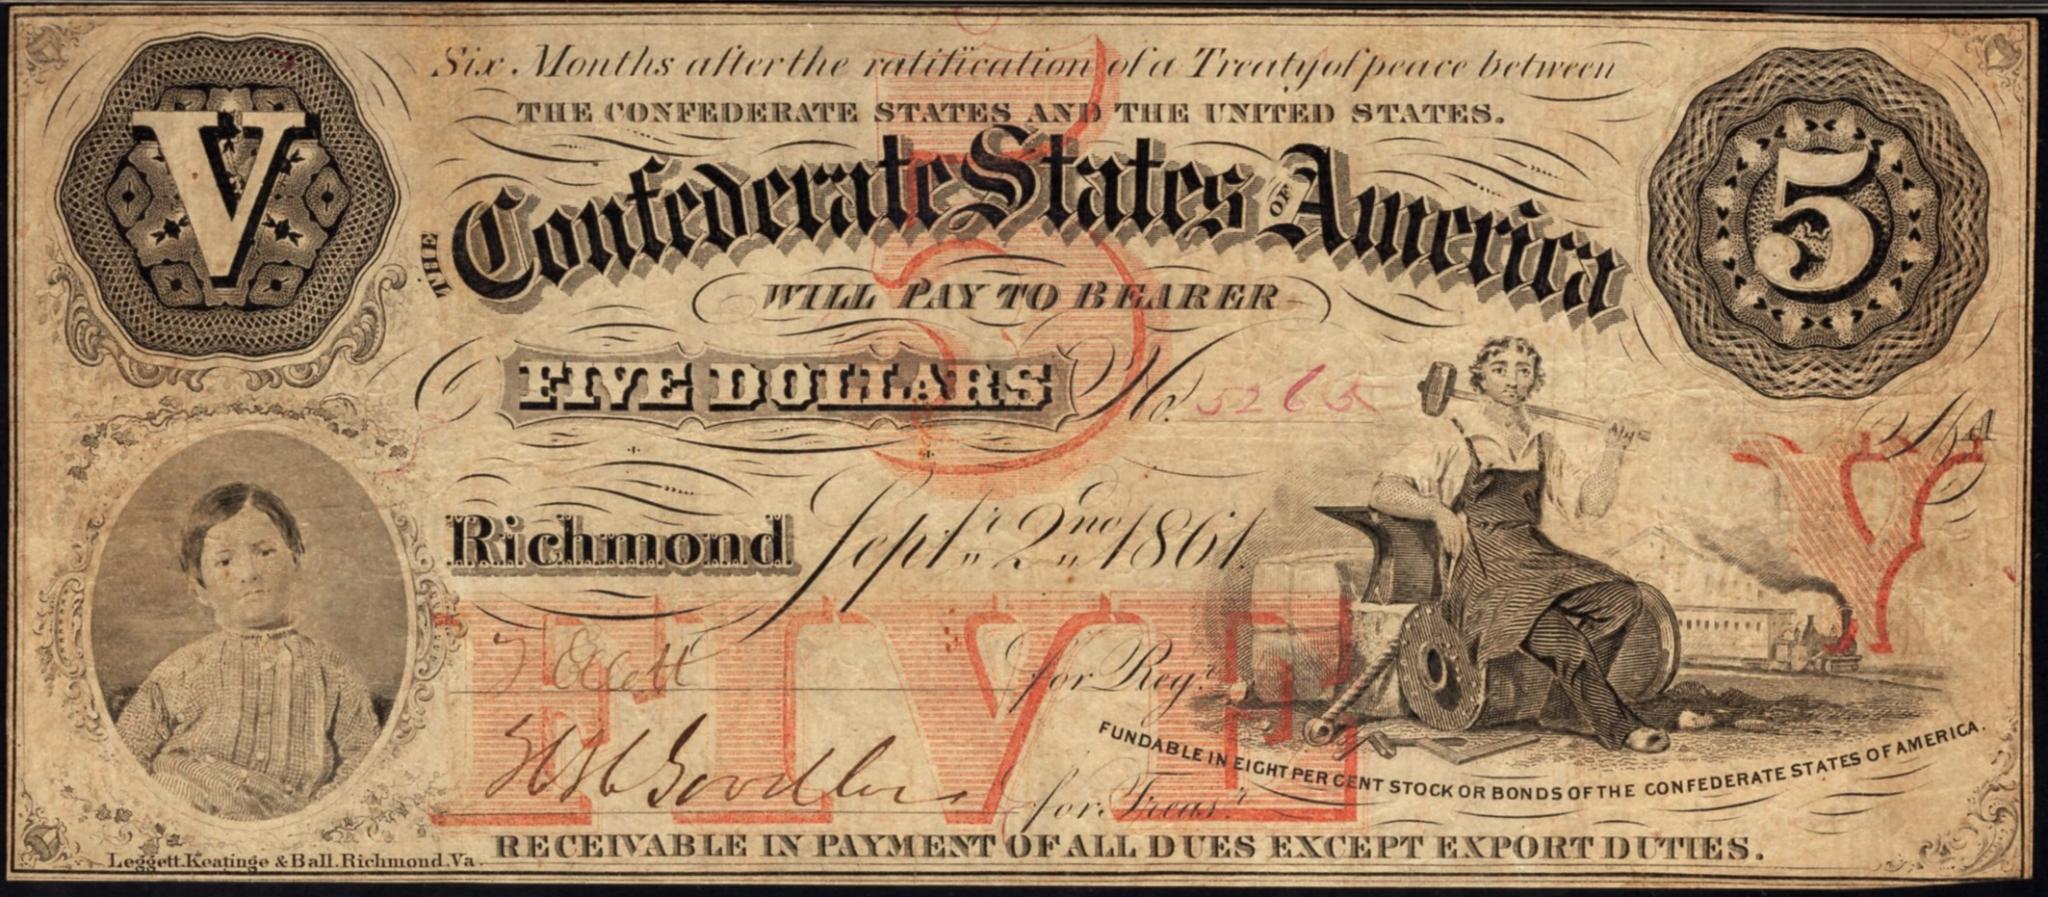 Six Months after the ratification of a Treaty of peace between
THE CONFEDERATE STATES AND THE UNITED STATES.
V
5
5
THE Confederate States OF America
WILL PAY TO BEARER
FIVE DOLLARS No. 5265
Richmond Septr. 2nd 1861.
V
FIVE
for Regr.
for Treasr.
FUNDABLE IN EIGHT PER CENT STOCK OR BONDS OF THE CONFEDERATE STATES OF AMERICA.
RECEIVABLE IN PAYMENT OF ALL DUES EXCEPT EXPORT DUTIES.
Leggett. Keatinge & Ball. Richmond. Va.